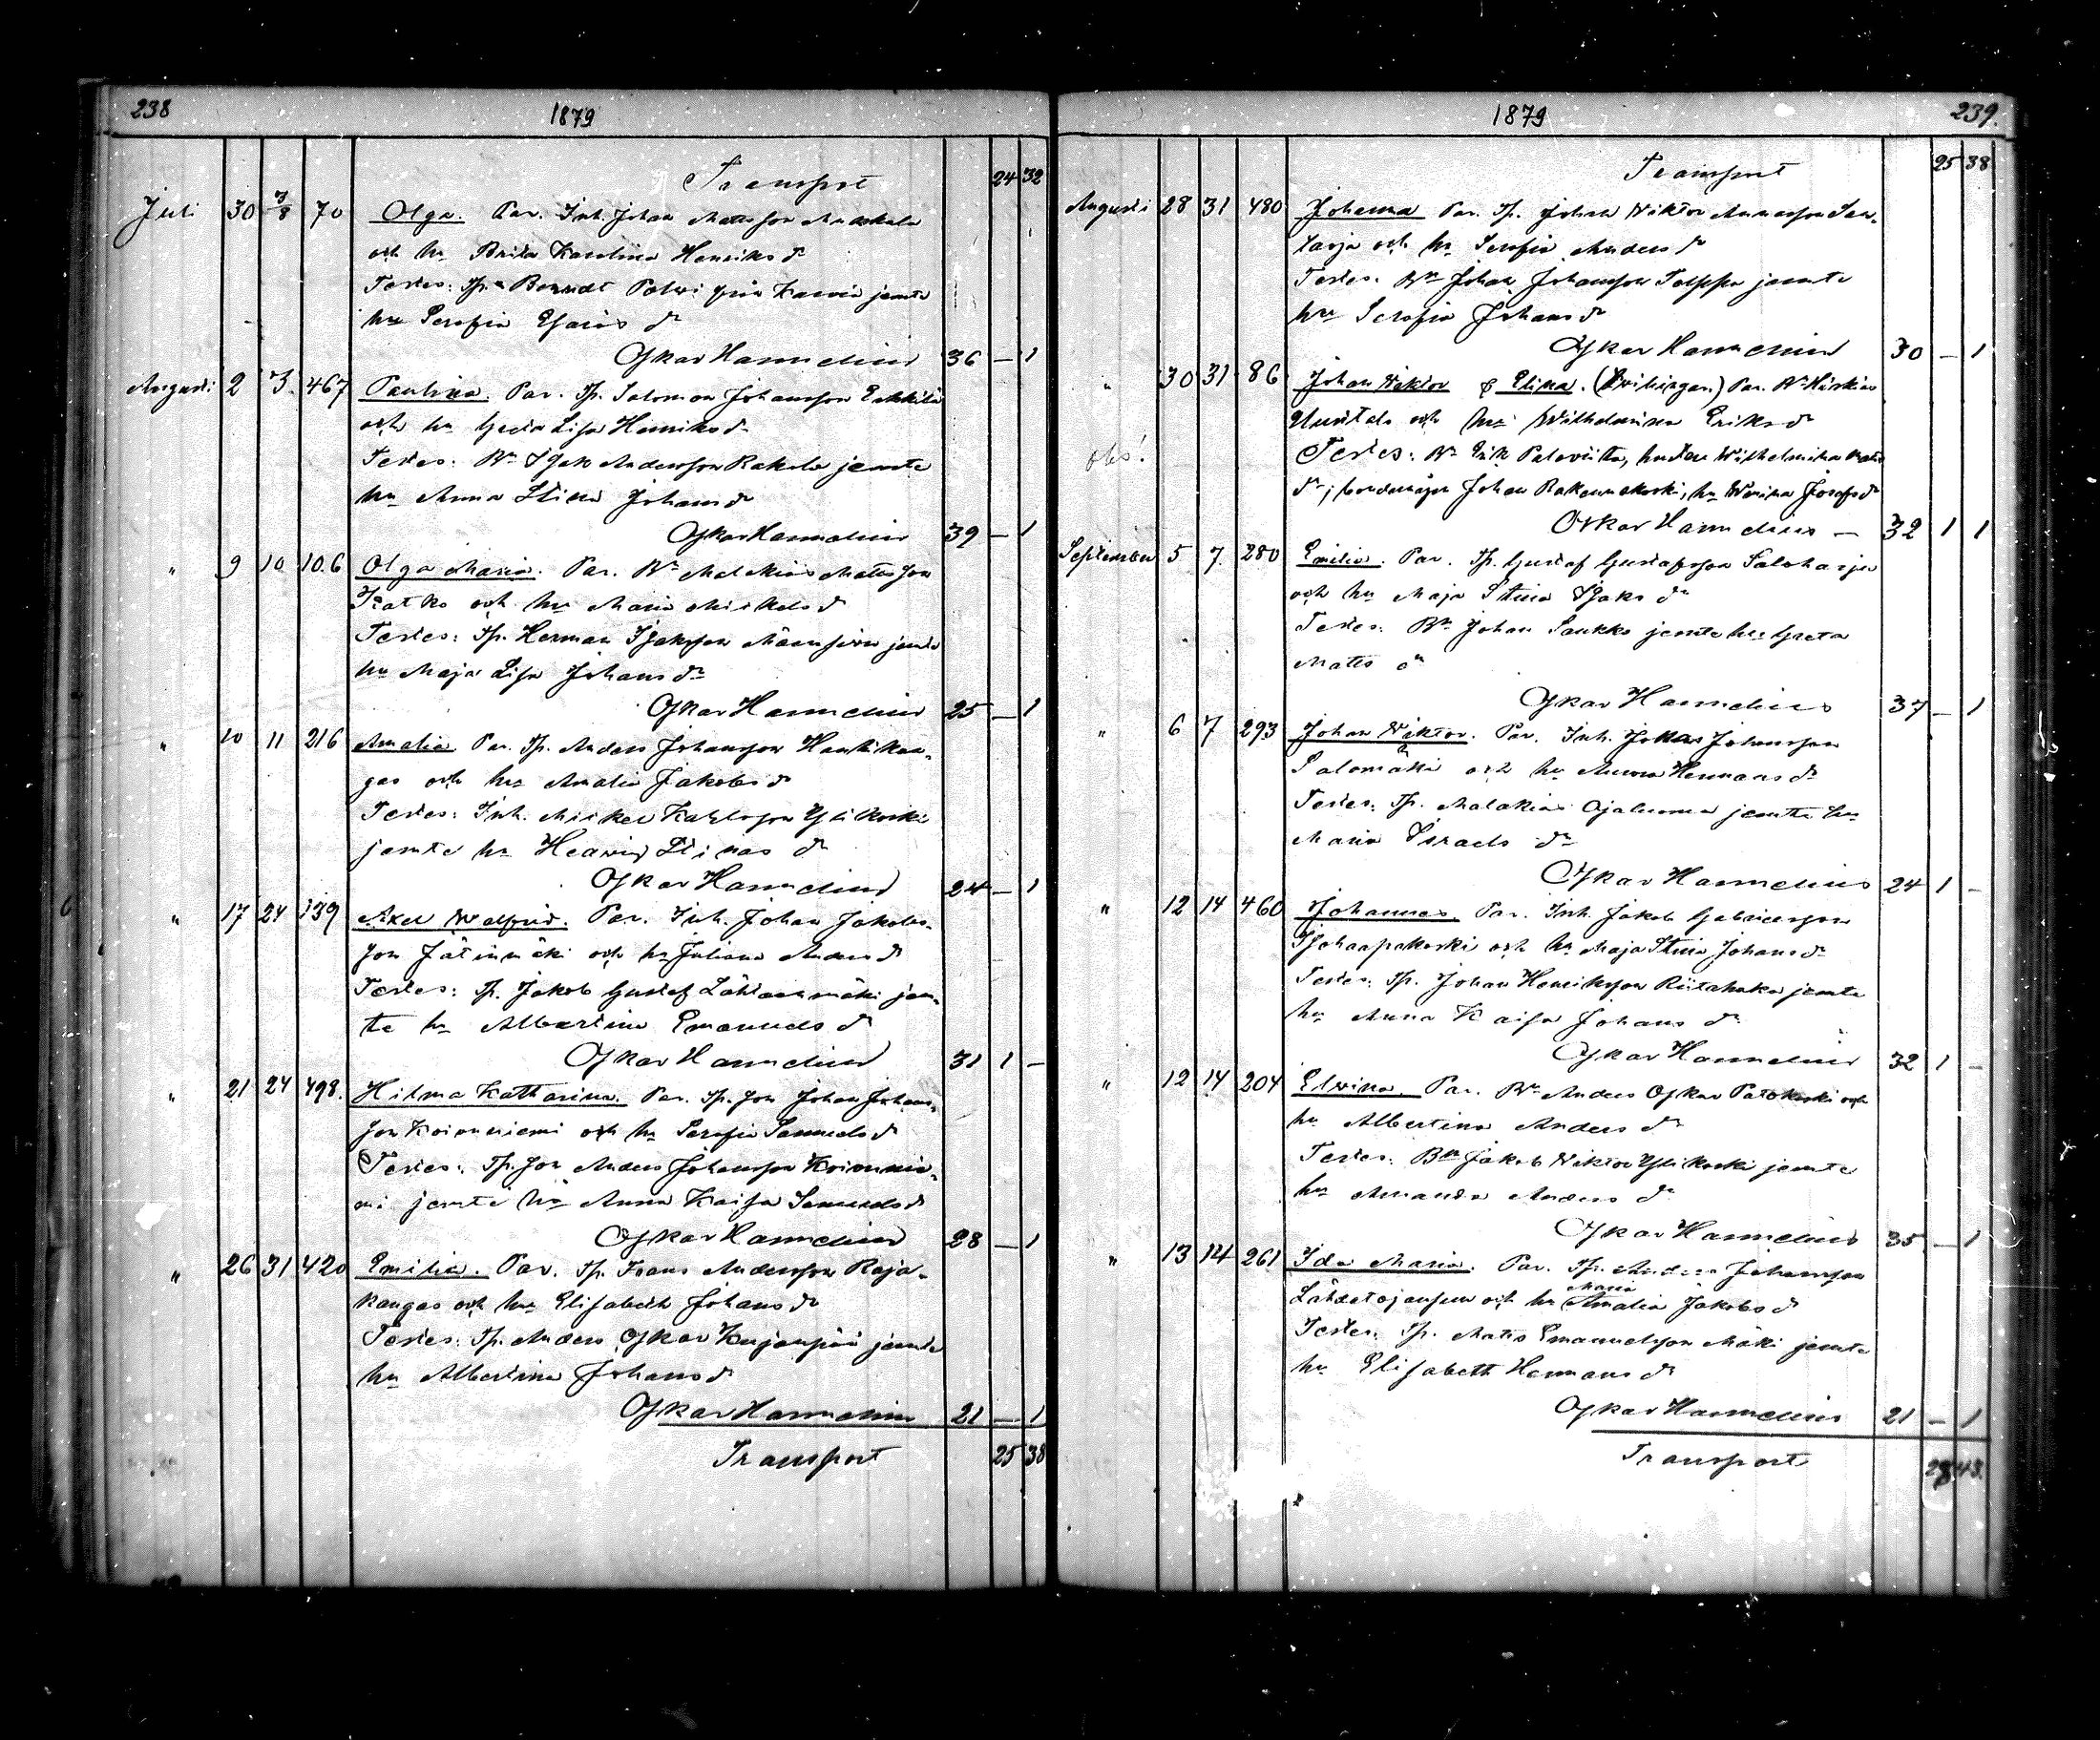 238 1879
Transport 24 32
Juli 30 3/8 70 Olga. Par. Inh. Johan Matsson
och hu Brita Karolina Henriks dr
Testes: Tp. Berndt jemte
hu Serafia Esaias dr
Oskar Hannelius 36 — 1
Augusti 2 3. 467 Paulina. Par. Tp. Salomon Johansson Erkkilä
och hu Greta Lisa Henriks dr
Testes: Bn Isak Andersson Rakola jemte
hu Anna Stina Johans dr
Oskar Hannelius 39 — 1
" 9 10 106 Olga Maria. Par. Bn Malakias Matsson
Katko och hu Maria Mickels dr
Testes: Tp. Herman Isaksson jemte
hu Maja Lisa Johans dr
Oskar Hannelius 25 — 1
" 10 11 216 Amalia. Par. Tp. Anders Johansson Hautikan-
gas och hu Amalia Jakobs dr
Testes: Inh. Mickel Karlsson Ylikoski
jemte hu Hedvig Stinas dr
Oskar Hannelius 24 — 1
" 17 24 139 Axel Walfrid. Par. Inh. Johan Jakobs-
son Jätinmäki och hu Juliana Anders dr
Testes: Tp. Jakob Gustaf Lähteenmäki jem-
te hu Albertina Emanuels dr
Oskar Hannelius 31 1 —
" 21 24 498. Hilma Katharina. Par. Tp. son Johan Johans-
son Koivuniemi och hu Serafia Samuels dr
Testes: Tp. son Anders Johansson Koivunie-
mi jemte hu Anna Kaisa Samuels dr
Oskar Hannelius 28 — 1
" 26 31 420 Emilia. Par. Tp. Frans Andersson Raja-
kangas och hu Elisabeth Johans dr
Testes: Tp. Anders Oskar Kujanpää jemte
hu Albertina Johans dr
Oskar Hannelius 21 — 1
Transport 25 38
1879 239.
Transport 25 38
Augusti 28 31 480 Johanna Par. Tp. Johan Viktor Andersson San-
tarja och hu Serafia Anders dr
Testes. Bn Johan Johansson jemte
hu Serafia Johans dr
Oskar Hannelius 30 — 1
" 30 31 86 Johan Viktor & Elina. (Tvillingar.) Par. Bn Hiskias
och hu Wilhelmina Eriks dr
obs! Testes: Bn Erik Paloviita, hustru Wilhelmina Mats
dr; bondemågen Johan Rakennuskoski, hu Josefs dr
Oskar Hannelius — 32 1 1
September 5 7. 280 Emilia. Par. Tp. Gustaf Gustafsson Saloharju
och hu Maja Stina Isaks dr
Testes: Bn Johan Saukko jemte hu Greta
Mats dr
Oskar Hannelius 37 — 1
" 6 7 293 Johan Viktor. Par. Inh. Johansson
Salomäki och hu Hermans dr
Testes: Tp. Malakias Ojaluoma jemte hu
Maria Israels dr
Oskar Hannelius 24 1 —
" 12 14 460 Johannes. Par. Inh. Jakob Gabrielsson
Isohaapakoski och hu Maja Stina Johans dr
Testes: Tp. Johan Henriksson Riitahaka jemte
hu Anna Kaisa Johans dr
Oskar Hannelius 32 1 —
" 12 14 204 Elvina. Par. Bn Anders Oskar Patokoski och
hu Albertina Anders dr
Testes: Bn Jakob Viktor Ylikoski jemte
hu Amanda Anders dr
Oskar Hannelius 35 — 1
" 13 14 261 Ida Maria. Par. Tp. Anders Johansson
Maria
Lähdetojansuu och hu Amalia Jakobs dr
Testes: Tp. Mats Emanuelsson Mäki jemte
hu Elisabeth Hermans dr
Oskar Hannelius 21 — 1
Transport 28 43.